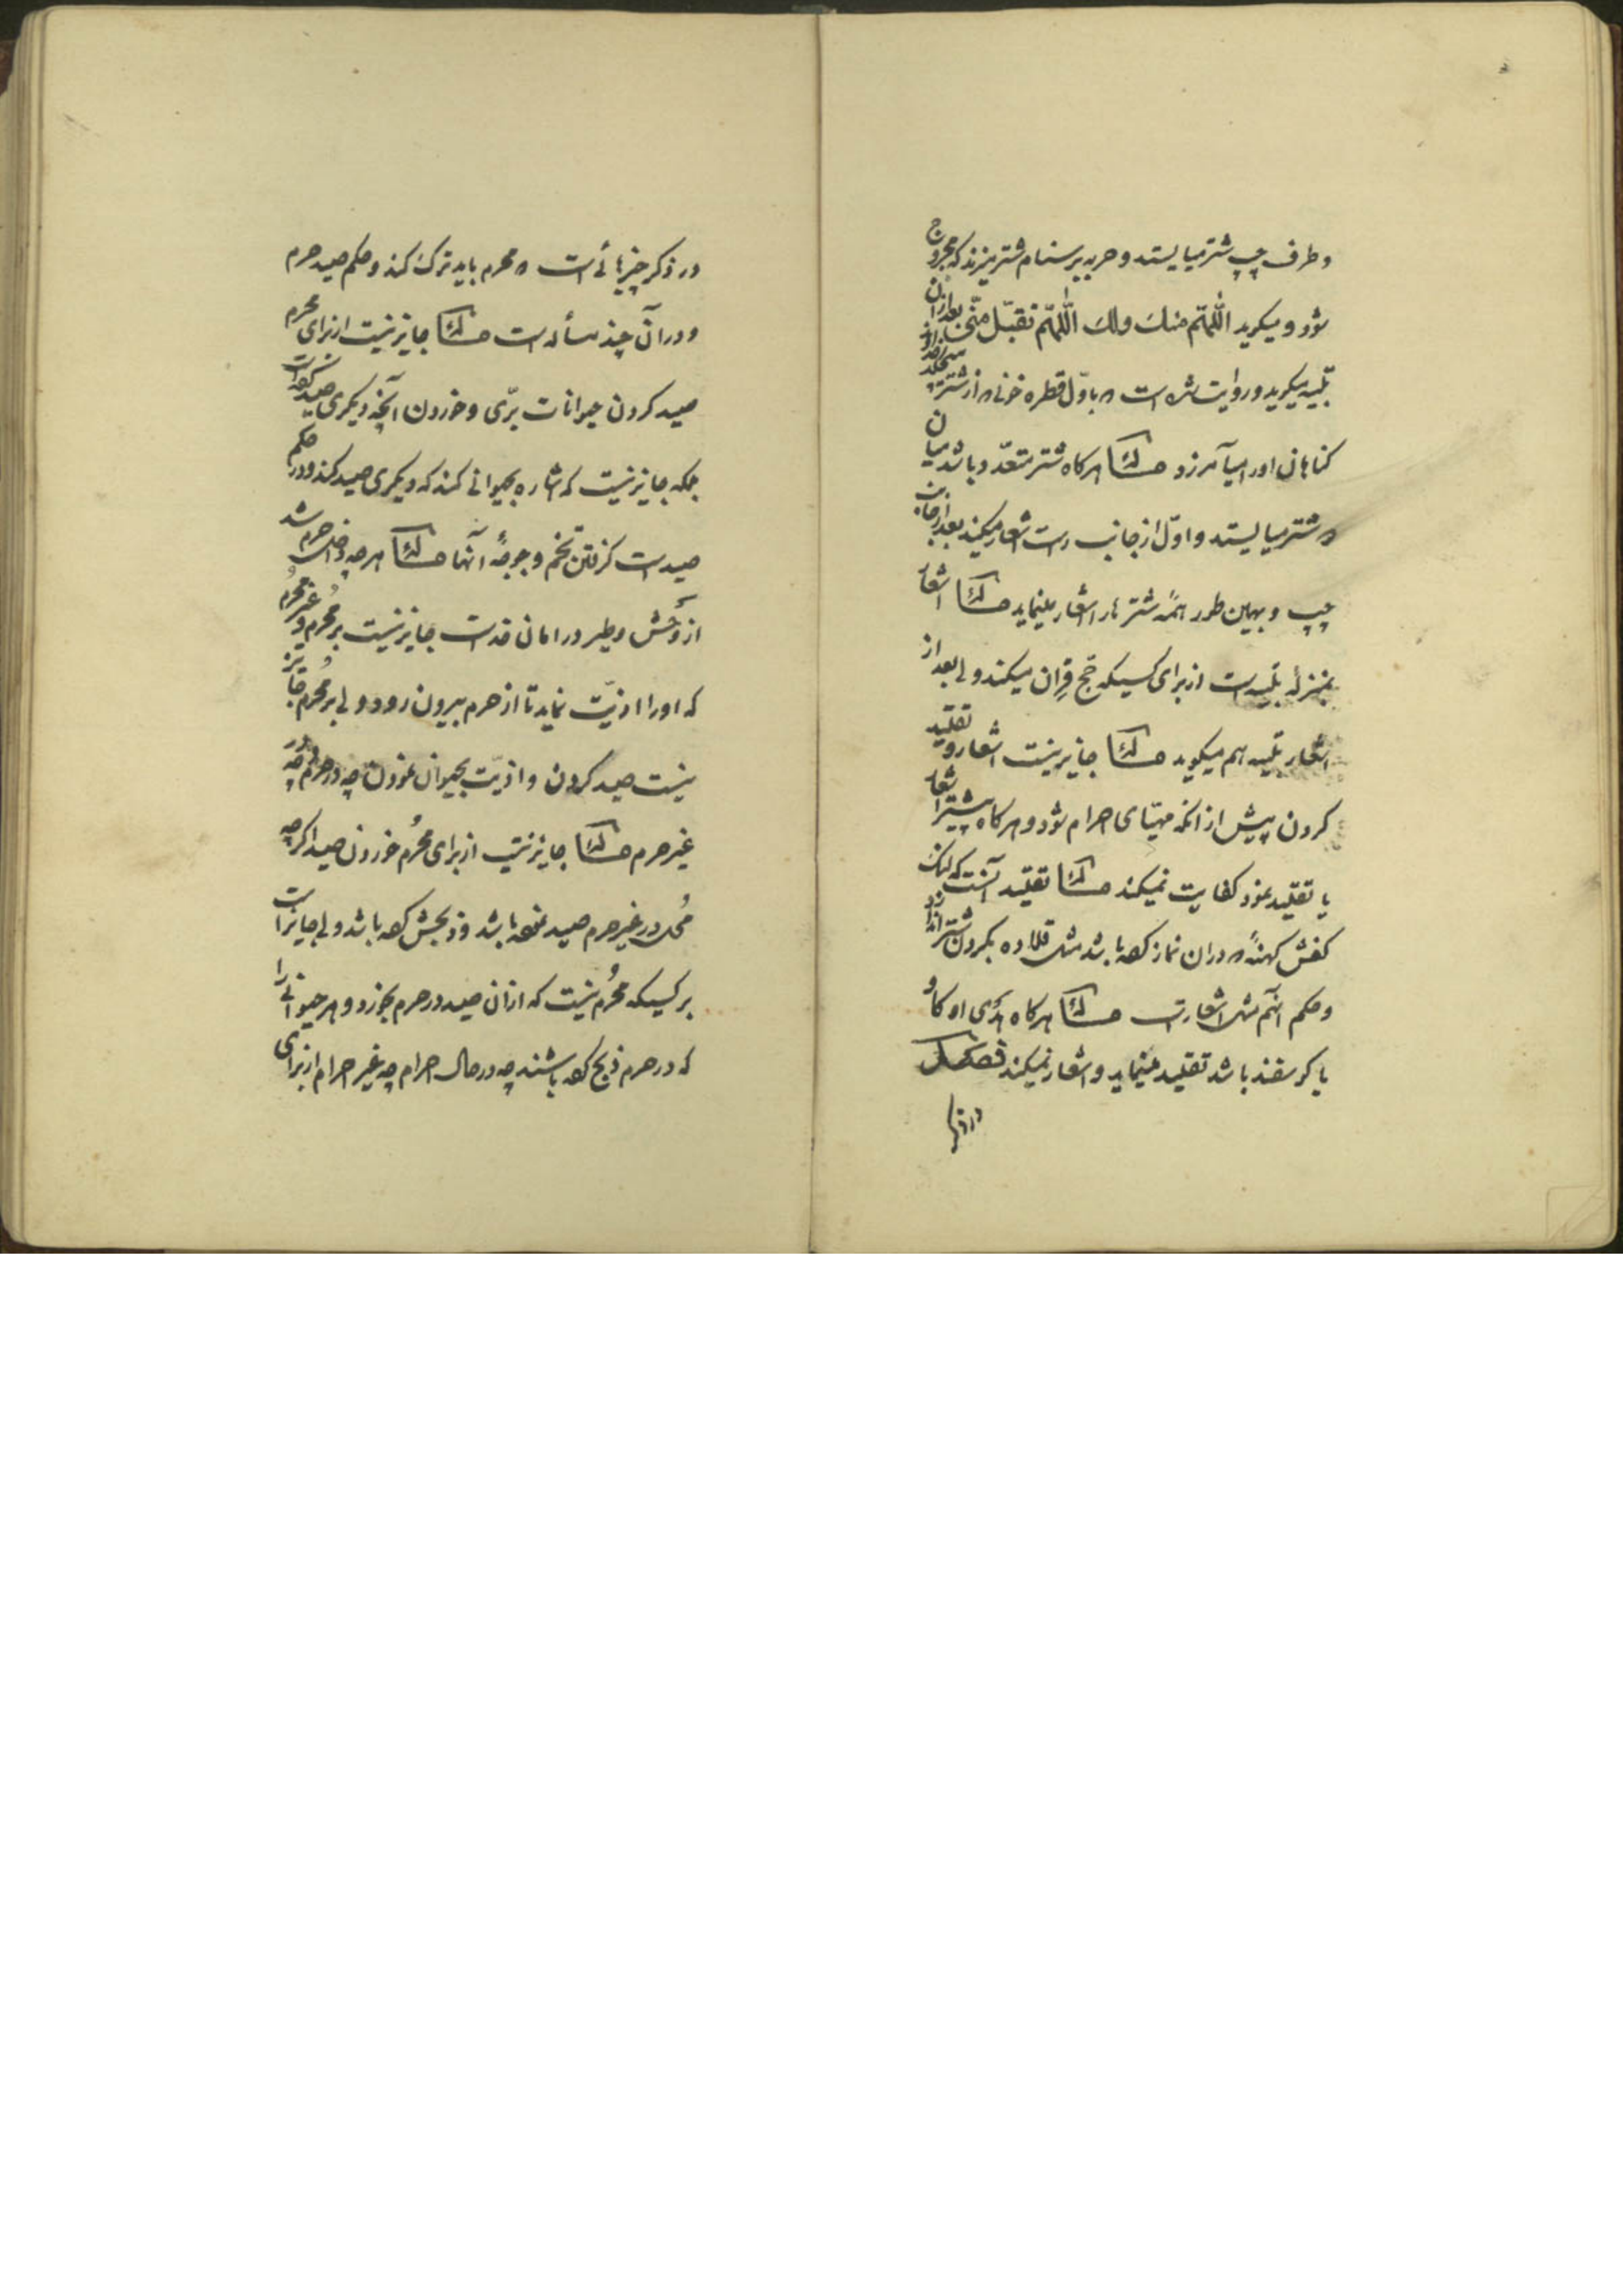 و طرف چپ شتر میایستد و حربه بر سنام شتر میزند که مجروح
شود و میگوید اللّهمّ منك ولك اللّهمّ تقبّل منّی بعد ازان
تلبیه میگوید و روایت شده است که باوّل قطره خونی که از شتر
گناهان او را میآمرزد مسئله هرگاه شتر متعدّد باشد میان
دو شتر میایستد و اوّل از جانب راست اشعار میکند بعد از جانب
چپ و بهمین طور همهٔ شترها را اشعار مینماید مسئله اشعار
بمنزلهٔ تلبیه است از برای کسیکه حجّ قران میکند ولی بعد از
اشعار تلبیه هم میگوید مسئله جایز نیست اشعار و تقلید
کردن پیش از آنکه مهیّای احرام شود و هرگاه پیشتر اشعار
یا تقلید نمود کفایت نمیکند مسئله تقلید آنست که لنگ
کفش کهنهٔ که در ان نماز کرده باشد مثل قلاده بگردن شتر اندازد
و حکم آنهم مثل اشعار است مسئله هرگاه هدی او گاو
یا گوسفند باشد تقلید مینماید و اشعار نمیکند فصل
در ذکر
در ذکر چیزهائی است که محرم باید ترك کند و حکم صید حرم
و در آن چند مسأله است مسئله جایز نیست از برای محرم
صید کردن حیوانات برّی و خوردن آنچه دیگری صید کرده است
بلکه جایز نیست که اشاره بحیوانی کند که دیگری صید کند و در حکم
صید است گرفتن تخم و جوجهٔ آنها مسئله هرچه داخل حرم شد
از وحش و طیر در امان خداست جایز نیست بر مُحرم و غیر مُحرم
که او را اذیّت نماید تا از حرم بیرون رود ولی بر مُحرم جایز
نیست صید کردن و اذیّت بحیوان نمودن چه در حرم چه در
غیر حرم مسئله جایز نیست از برای مُحرم خوردن صید اگرچه
مُحل در غیر حرم صید نموده باشد و ذبحش کرده باشد ولی جایز است
بر کسیکه مُحرم نیست که از ان صید در حرم بخورد و هر حیوانی را
که در حرم ذبح کرده باشند چه در حال احرام چه غیر احرام از برای